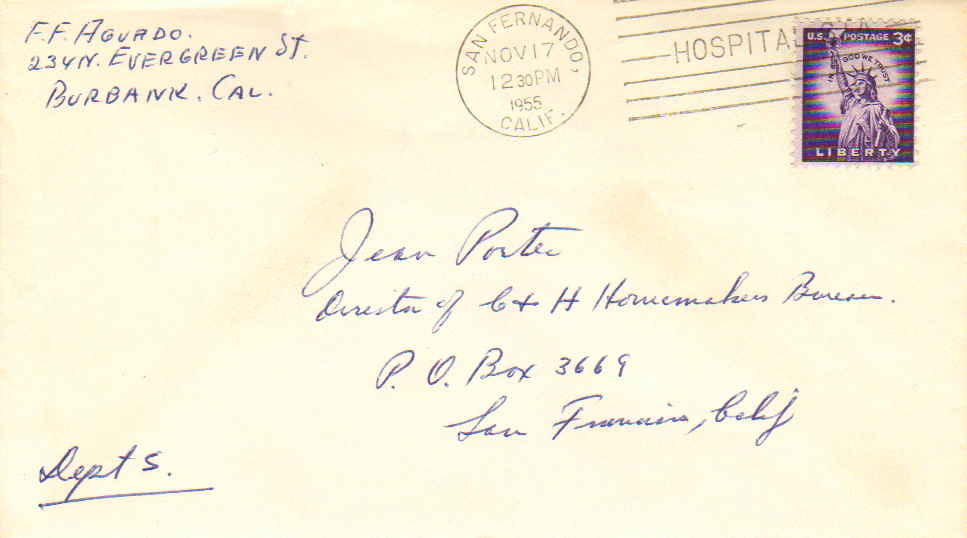 F.F. AGUADO.
234 N. EVERGREEN ST.
BURBANK. CAL.
SAN FERNANDO,
NOV 17
12 30 PM
1955
CALIF.
HOSPITAL
U.S. POSTAGE 3¢
IN GOD WE TRUST
LIBERTY
Jean Porter
Director of C + H Homemakers Bureau.
P. O. Box 3669
San Francisco, Calif
Dept S.